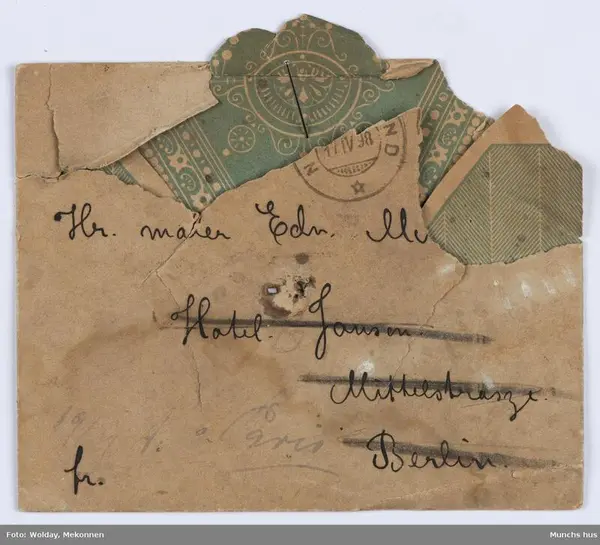 Hr. maler Edv. M
Hotel Jansen
Mittelstrasze
Berlin.
fr.
Foto: Wolday, Mekonnen
Munchs hus